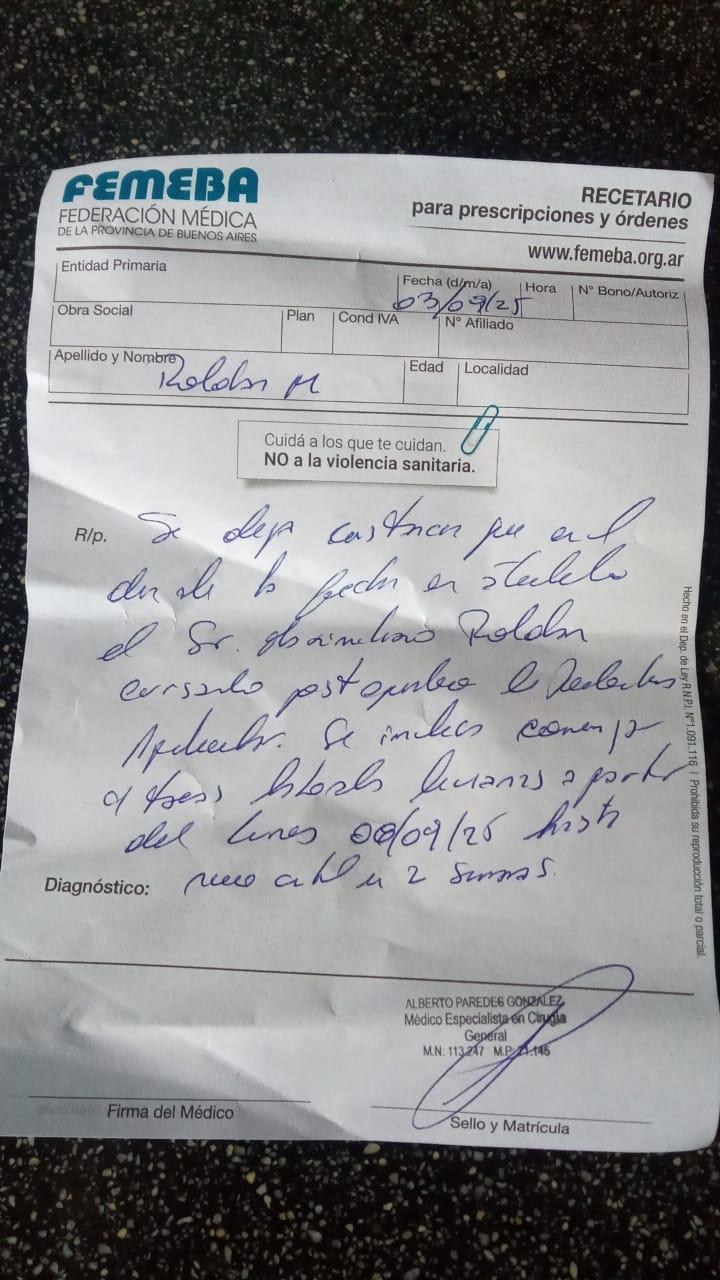 FEMEBA
FEDERACIÓN MÉDICA
DE LA PROVINCIA DE BUENOS AIRES
RECETARIO
para prescripciones y órdenes
www.femeba.org.ar
Entidad Primaria
Fecha (d/m/a) 03/09/25
Hora
N° Bono/Autoriz
Obra Social
Plan
Cond IVA
N° Afiliado
Apellido y Nombre Roldan M
Edad
Localidad
Cuidá a los que te cuidan.
NO a la violencia sanitaria.
R/p. Se deja constancia que en el
día de la fecha
el Sr. Maximiliano Roldan
cursando
Se indica
a tareas livianas a partir
del lunes 08/09/25 hasta
Diagnóstico: 2 semanas.
ALBERTO PAREDES GONZALEZ
Médico Especialista en Cirugía
General
M.N: 113.247 M.P: 21.145
Firma del Médico
Sello y Matrícula
Hecho en el Dep. de Ley R.N.P.I. N°1.091.116 | Prohibida su reproducción total o parcial.